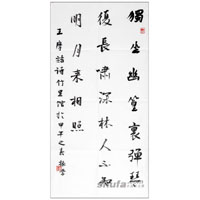 獨坐幽篁裏彈琴
復長嘯深林人不知
明月來相照
王摩詰詩竹里館於甲午之春